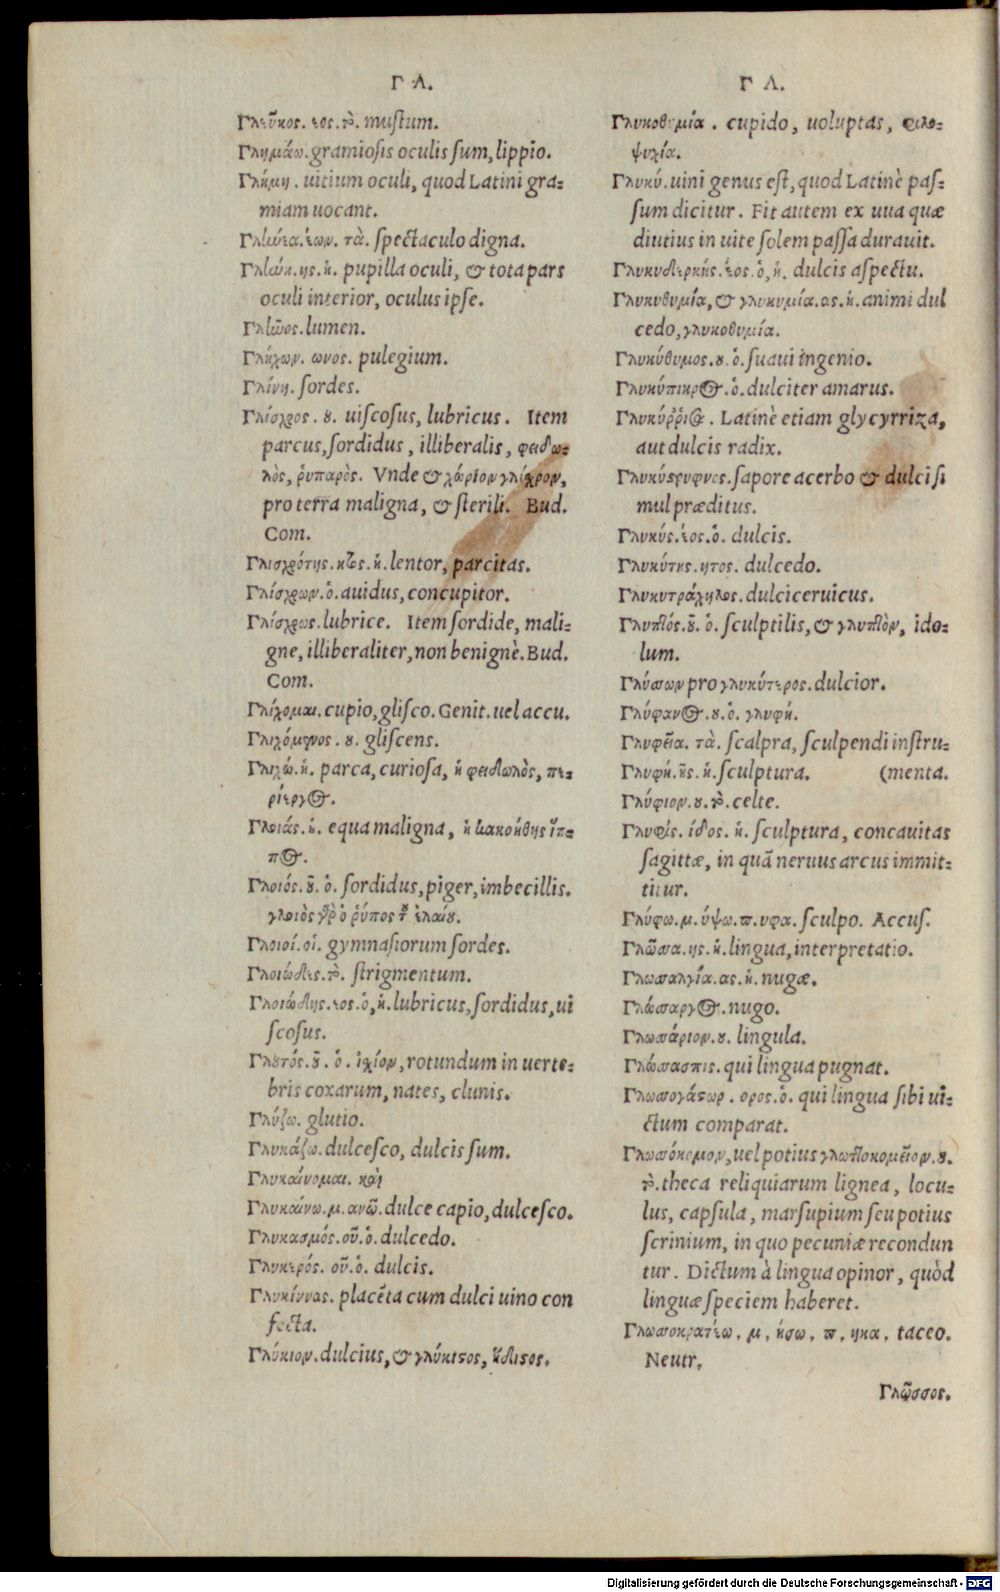 Γ Λ.
Γλεῦκος. εος. τὸ. mustum.
Γλημάω. gramiosis oculis sum, lippio.
Γλήμη. uitium oculi, quod Latini gra-
miam uocant.
Γλήνεα. έων. τὰ. spectaculo digna.
Γλήνη. ης. ἡ. pupilla oculi, & tota pars
oculi interior, oculus ipse.
Γλῆνος. lumen.
Γλήχων. ωνος. pulegium.
Γλίνη. sordes.
Γλίσχρος. ου. uiscosus, lubricus. Item
parcus, sordidus, illiberalis, φειδω-
λὸς, ῥυπαρὸς. Vnde & χωρίον γλίχρον,
pro terra maligna, & sterili. Bud.
Com.
Γλισχρότης. ητος. ἡ. lentor, parcitas.
Γλίσχρων. ὁ. auidus, concupitor.
Γλίσχρως. lubrice. Item sordide, mali-
gne, illiberaliter, non benignè. Bud.
Com.
Γλίχομαι. cupio, glisco. Genit. uel accu.
Γλιχόμενος. ου. gliscens.
Γλιχώ. ἡ. parca, curiosa, ἡ φειδωλὸς, πε-
ρίεργος.
Γλοιάς. ἡ. equa maligna, ἡ κακοήθης ἵπ-
πος.
Γλοιός. οῦ. ὁ. sordidus, piger, imbecillis.
γλοιὸς γὰρ ὁ ῥύπος τοῦ ἐλαίου.
Γλοιοί. οἱ. gymnasiorum sordes.
Γλοιῶδες. τὸ. strigmentum.
Γλοιώδης. εος. ὁ, ἡ. lubricus, sordidus, ui
scosus.
Γλουτός. οῦ. ὁ. ἰχίον, rotundum in uerte-
bris coxarum, nates, clunis.
Γλύζω. glutio.
Γλυκάζω. dulcesco, dulcis sum.
Γλυκαίνομαι. καὶ
Γλυκαίνω. μ. ανῶ. dulce capio, dulcesco.
Γλυκασμός. οῦ. ὁ. dulcedo.
Γλυκερός. οῦ. ὁ. dulcis.
Γλυκίννας. placẽta cum dulci uino con
fecta.
Γλύκιον. dulcius, & γλύκιστος, ἥδιστος.
Γ Λ.
Γλυκοθυμία. cupido, uoluptas, φιλο-
ψυχία.
Γλυκύ. uini genus est, quod Latinè pas-
sum dicitur. Fit autem ex uua quæ
diutius in uite solem passa durauit.
Γλυκυδερκής. έος. ὁ, ἡ. dulcis aspectu.
Γλυκυθυμία, & γλυκυμία. ας. ἡ. animi dul
cedo, γλυκοθυμία.
Γλυκύθυμος. ου. ὁ. suaui ingenio.
Γλυκύπικρος. ὁ. dulciter amarus.
Γλυκύῤῥιζα. Latinè etiam glycyrriza,
aut dulcis radix.
Γλυκύστρυφνος. sapore acerbo & dulci si
mul præditus.
Γλυκύς. έος. ὁ. dulcis.
Γλυκύτης. ητος. dulcedo.
Γλυκυτράχηλος. dulciceruicus.
Γλυπτός. οῦ. ὁ. sculptilis, & γλυπτὸν, ido-
lum.
Γλύσσων pro γλυκύτερος. dulcior.
Γλύφανος. ου. ὁ. γλυφή.
Γλυφεῖα. τὰ. scalpra, sculpendi instru-
Γλυφή. ῆς. ἡ. sculptura. (menta.
Γλύφιον. ου. τὸ. celte.
Γλυφὶς. ίδος. ἡ. sculptura, concauitas
sagittæ, in quã neruus arcus immit-
titur.
Γλύφω. μ. ύψω. π. υφα. sculpo. Accus.
Γλῶσσα. ης. ἡ. lingua, interpretatio.
Γλωσσαλγία. ας. ἡ. nugæ.
Γλώσσαργος. nugo.
Γλωσσάριον. ου. lingula.
Γλώσσασπις. qui lingua pugnat.
Γλωσσογάστωρ. ορος. ὁ. qui lingua sibi ui-
ctum comparat.
Γλωσσόκομον, uel potius γλωττοκομεῖον. ου.
τὸ. theca reliquiarum lignea, locu-
lus, capsula, marsupium seu potius
scrinium, in quo pecuniæ recondun
tur. Dictum à lingua opinor, quòd
linguæ speciem haberet.
Γλωσσοκρατέω. μ. ήσω. π. ηκα. taceo.
Neutr.
Γλῶσσος.
Digitalisierung gefördert durch die Deutsche Forschungsgemeinschaft - DFG